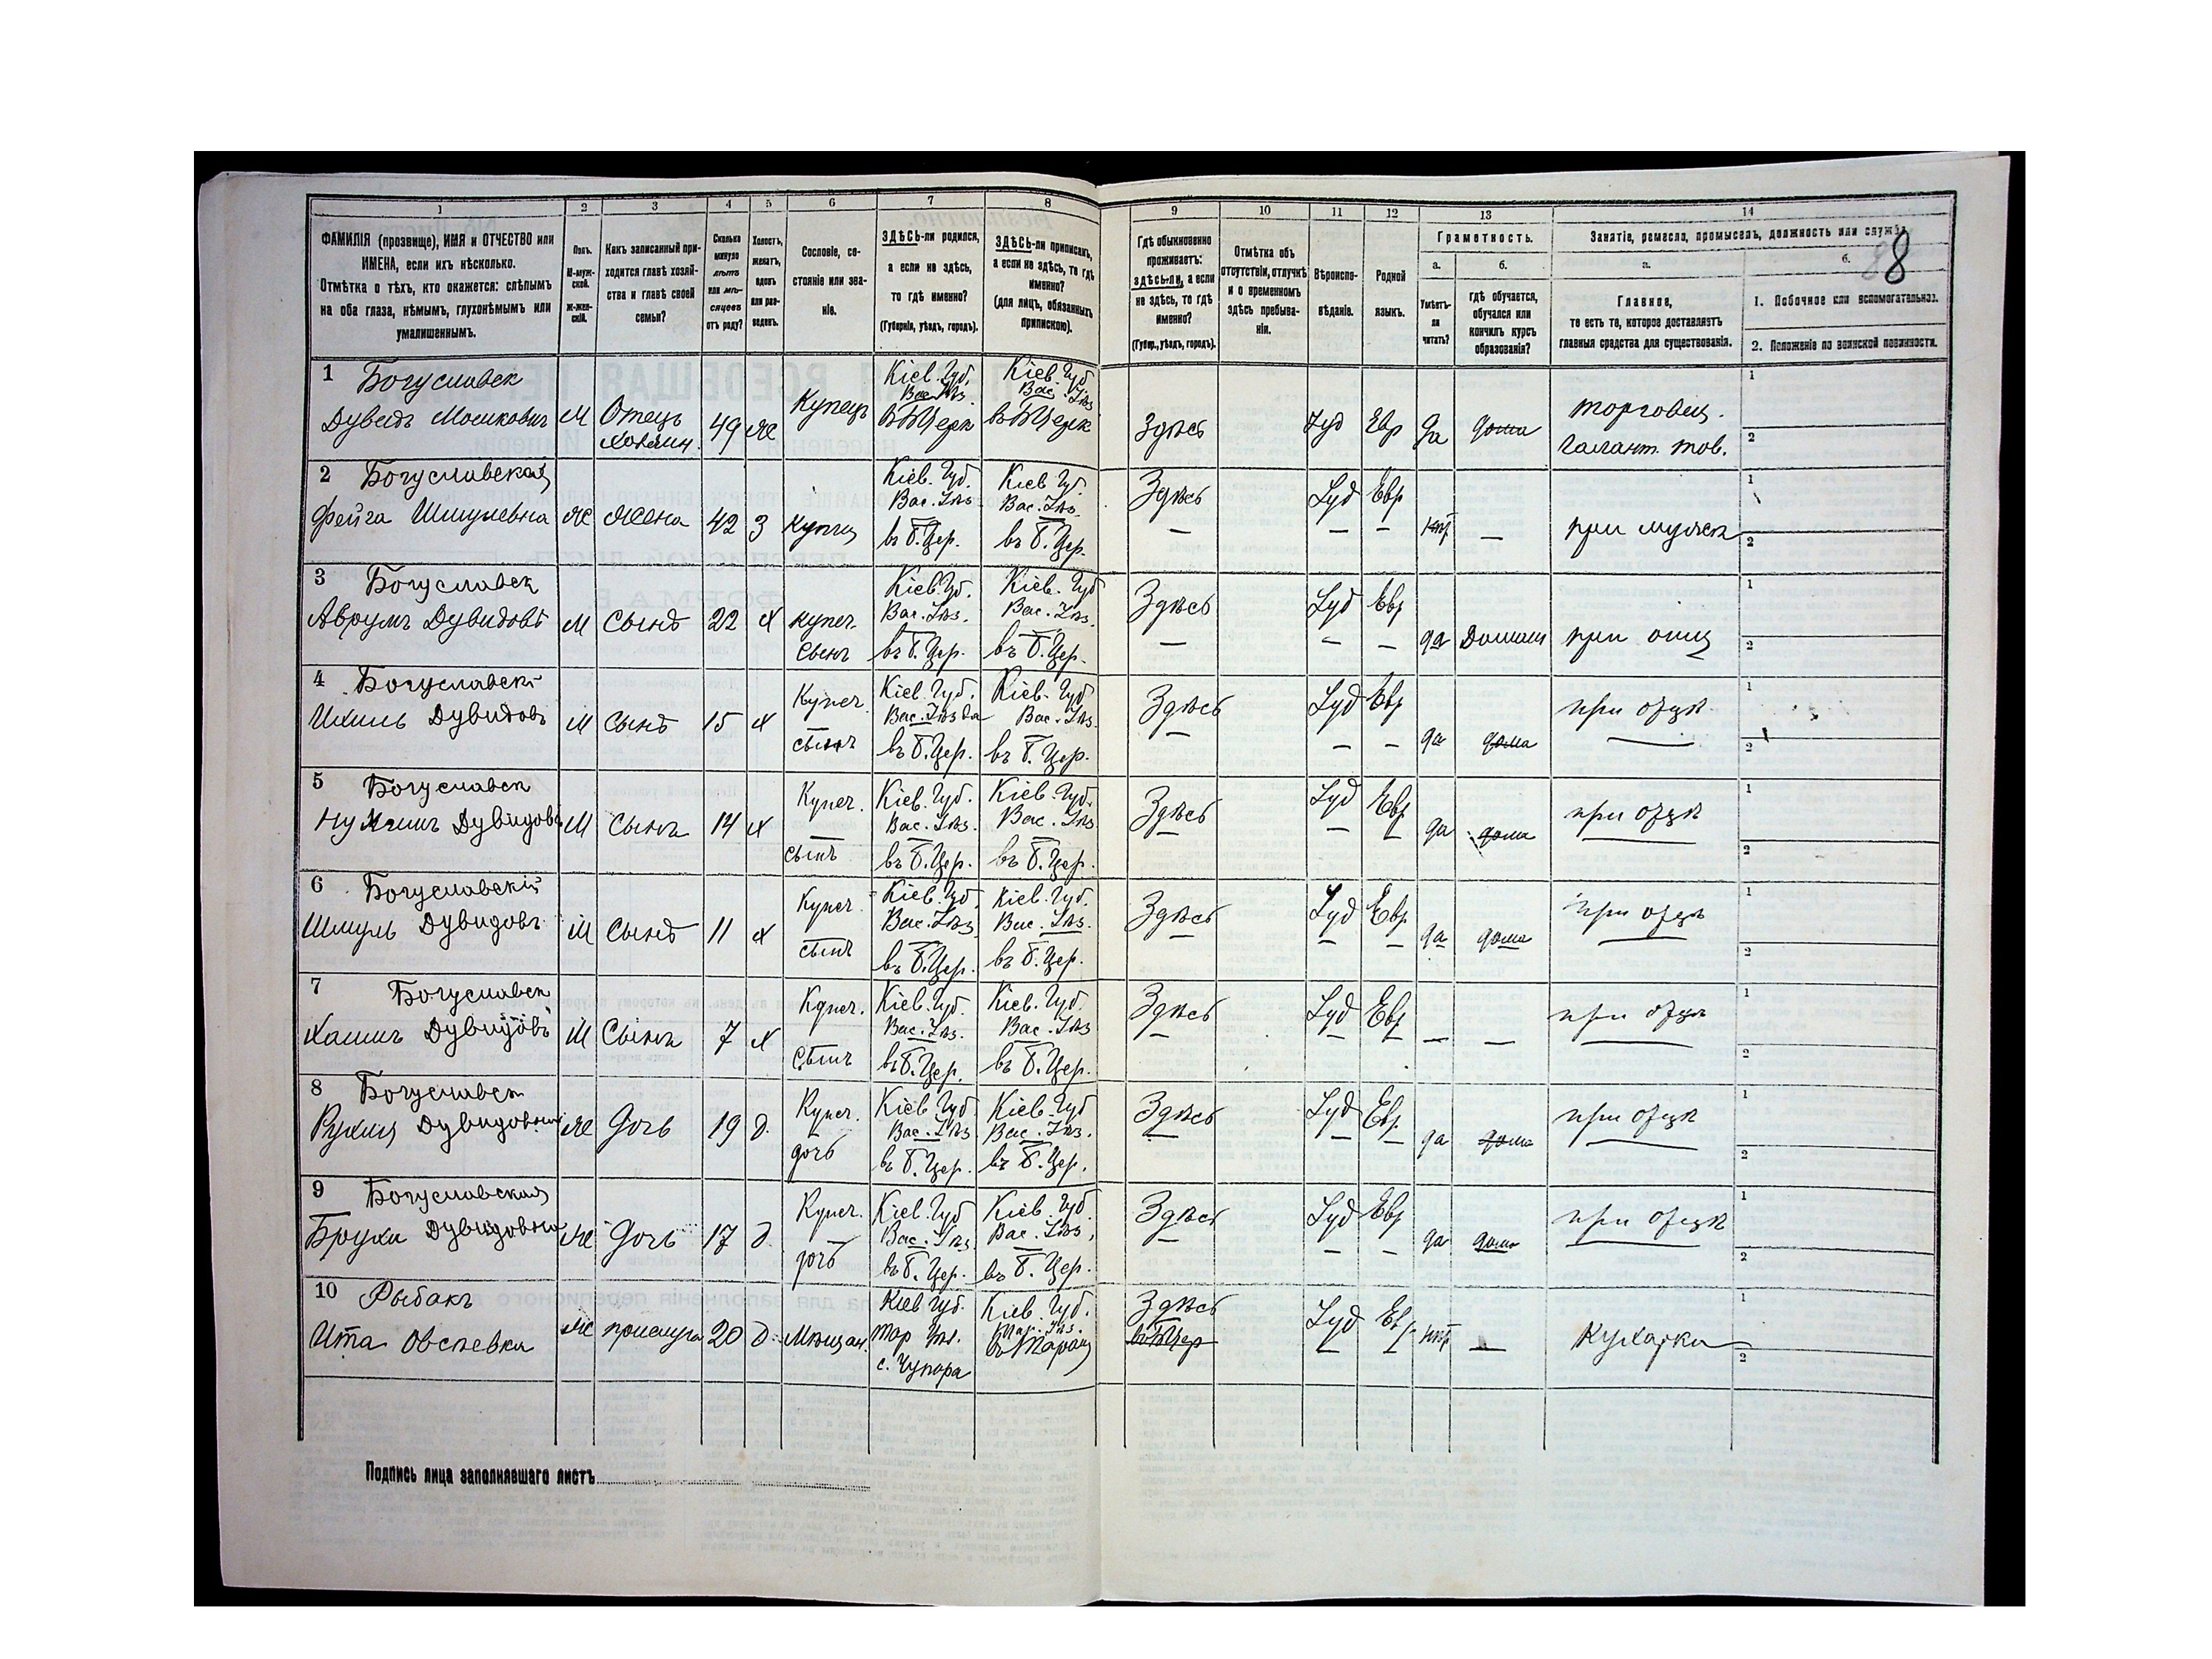 1 2 3 4 5 6 7 8 9 10 11 12 13 14
ФАМИЛІЯ (прозвище), ИМЯ и ОТЧЕСТВО или
ИМЕНА, если ихъ нѣсколько.
Отмѣтка о тѣхъ, кто окажется: слѣпымъ
на оба глаза, нѣмымъ, глухонѣмымъ или
умалишеннымъ.
Полъ.
М-муж-
ской.
Ж-жен-
скій.
Какъ записанный при-
ходится главѣ хозяй-
ства и главѣ своей
семьи?
Сколько
минуло
лѣтъ
или мѣ-
сяцевъ
отъ роду?
Холостъ,
женатъ,
вдовъ
или раз-
веденъ.
Сословіе, со-
стояніе или зва-
ніе.
ЗДѢСЬ-ли родился,
а если не здѣсь,
то гдѣ именно?
(Губернія, уѣздъ, городъ).
ЗДѢСЬ-ли приписанъ,
а если не здѣсь, то гдѣ
именно?
(для лицъ, обязанныхъ
припискою).
Гдѣ обыкновенно
проживаетъ:
здѣсь-ли, а если
не здѣсь, то гдѣ
именно?
(Губер., уѣздъ, городъ).
Отмѣтка объ
отсутствіи, отлучкѣ
и о временномъ
здѣсь пребыва-
ніи.
Вѣроиспо-
вѣданіе.
Родной
языкъ.
Грамотность.
а.
Умѣетъ-
ли
читать?
б.
гдѣ обучается,
обучался или
кончилъ курсъ
образованія?
Занятіе, ремесло, промыселъ, должность или служба.
88
а.
Главное,
то есть то, которое доставляетъ
главныя средства для существованія.
б.
1. Побочное или вспомогательное.
2. Положеніе по воинской повинности.
1 Богуславск Кіев. Губ. Кіев. Губ. 1
Купецъ Вас. Уѣз. Вас. Уѣз. торговец.
Дувидъ Мошковичъ М Отецъ 49 Ж въ Б Церк въ Б Церк Здѣсь Іуд Евр да дома
хозяин. галант. тов. 2
2 Богуславская Кіев. Губ. Кіев Губ. Здѣсь Іуд Евр 1
Вас. Уѣз Вас. Уѣз.
Фейга Шмулевна Ж Жена 42 З въ Б. Цер. въ Б. Цер. — — — нѣт — при мужѣ 2
3 Богуславск Кіев. Губ. Кіев. Губ Здѣсь Іуд Евр 1
Аврумъ Дувидовъ М Сынъ 22 Х купеч. Вас. Уѣз. Вас. Уѣз.
сынъ въ Б. Цер. въ Б. Цер. — — — да 2
4 Богуславскі Купеч. Кіев. Губ. Кіев. Губ Здѣсь Іуд Евр при отцѣ 1
Дувидовъ М Сынъ 15 Х Вас. Уѣзда Вас. Уѣз.
сынъ въ Б. Цер. въ Б. Цер. — — да дома 2
5 Богуславск Купеч. Кіев. Губ. Кіев. Губ. Здѣсь Іуд Евр при отцѣ 1
Дувидовъ М Сынъ 14 Х Вас. Уѣз. Вас. Уѣз да дома
сынъ въ Б. Цер. въ Б. Цер. 2
6 Богуславскій Купеч. Кіев. Губ. Кіев. Губ. Здѣсь Іуд Евр при отцѣ 1
Шмуль Дувидовъ М Сынъ 11 Х Вас. Уѣз. Вас. Уѣз. да дома
сынъ въ Б. Цер. въ Б. Цер. 2
7 Богуславск Купеч. Кіев. Губ. Кіев. Губ. Здѣсь Іуд Евр при отцѣ 1
Дувидовъ М Сынъ 7 Х Вас. Уѣз. Вас. Уѣз — —
сынъ въ Б. Цер. въ Б. Цер. 2
8 Купеч. Кіев. Губ Кіев. Губ Здѣсь Іуд Евр при отцѣ 1
Рухля Дувидовна Ж Дочь 19 д. Вас. Уѣз Вас. Уѣз. да дома
дочь въ Б. Цер. въ Б. Цер. 2
9 Богуславская Купеч. Кіев. Губ Кіев. Губ. Здѣсь Іуд Евр при отцѣ 1
Брухи Дувидовна Ж Дочь 17 д. Вас. Уѣз. Вас. Уѣз. да дома
дочь въ Б. Цер. въ Б. Цер. 2
10 Рыбакъ Кіев Губ. Кіев. Губ. Здѣсь Іуд Евр 1
Ита Овсеевна Ж прислуга 20 д. Мѣщан. Тар Уѣз. Тар. Уѣз. въ Б Цер нѣт — Кухарка
с. Чупора въ Таращ 2
Подпись лица заполнявшаго листъ